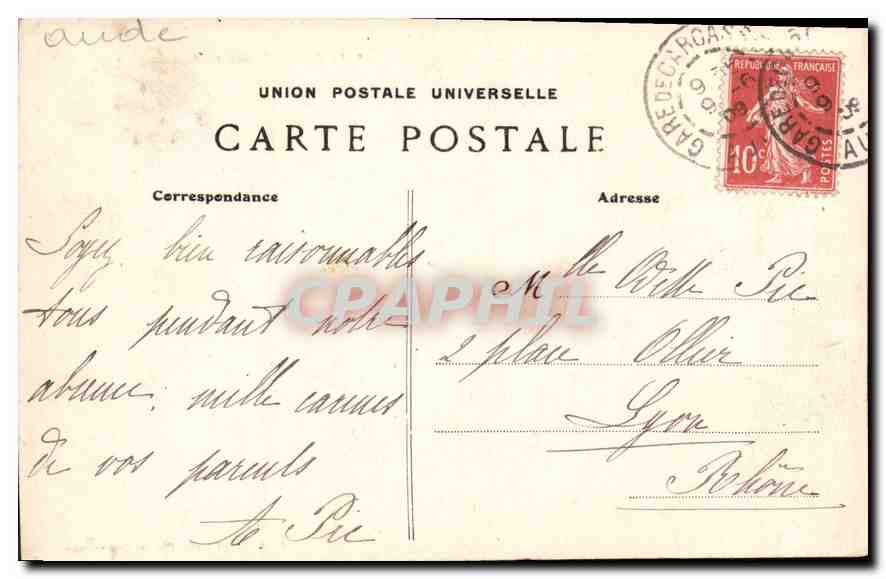 aude
UNION POSTALE UNIVERSELLE
CARTE POSTALE
GARE DE CARCASS
REPUBLIQUE FRANÇAISE
10c POSTES
Correspondance
Adresse
Soyez bien raisonnables
tous pendant notre
absence. mille caresses
de vos parents
A. Pic
Mlle Odette Pic
2 place Ollier
Lyon
Rhône
CPAPHIL